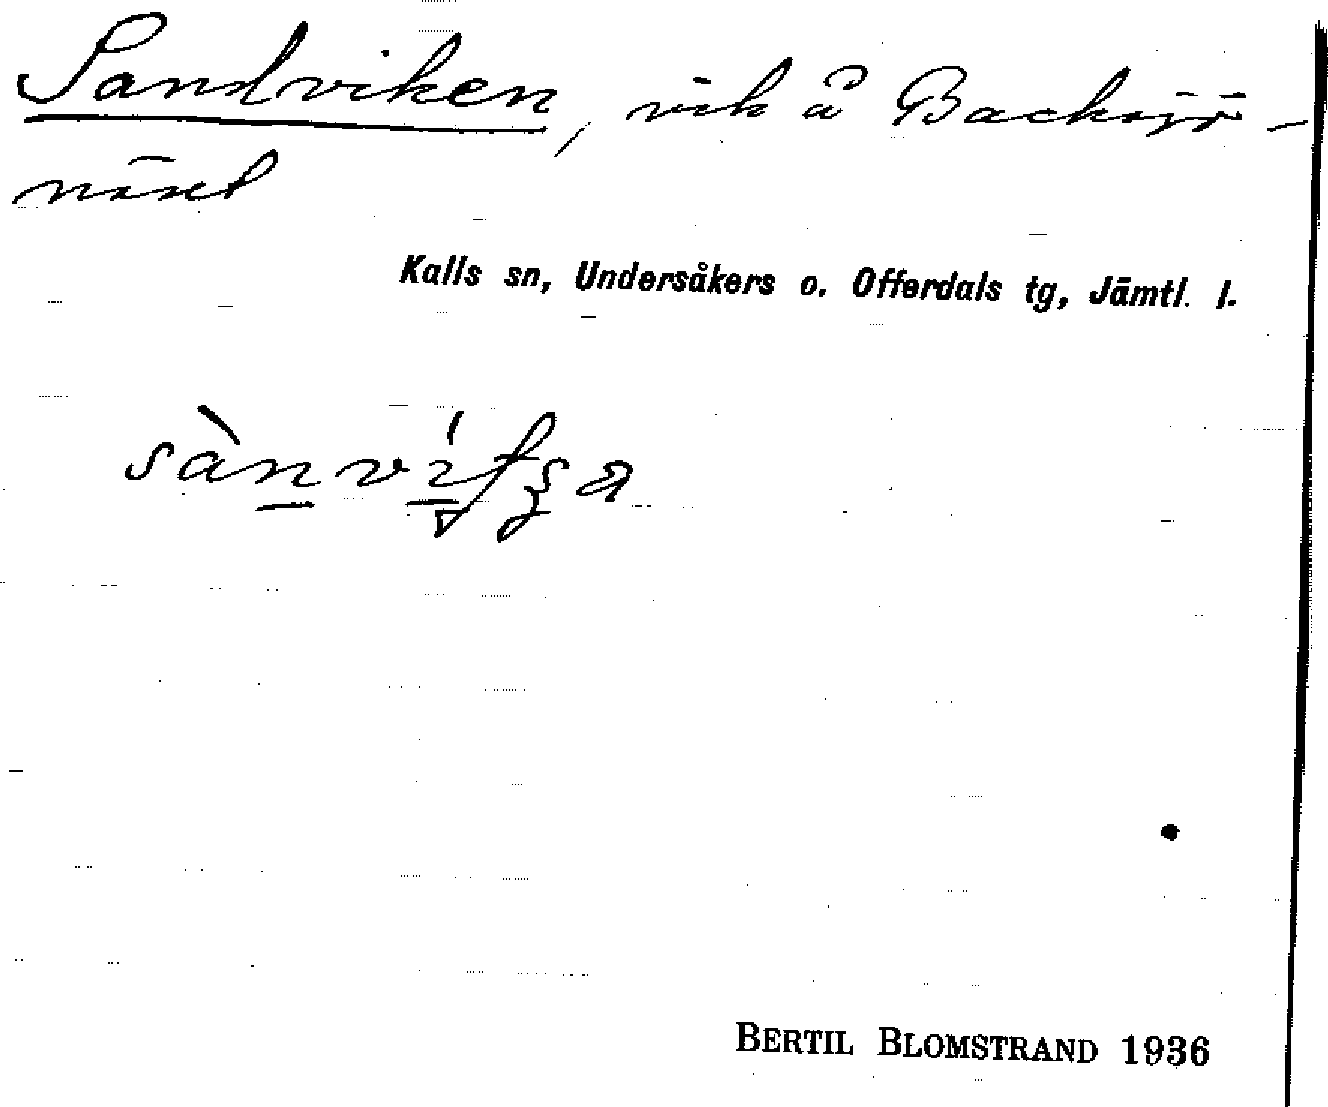 Sandviken, vik å Backsjö-
näset
Kalls sn, Undersåkers o. Offerdals tg, Jämtl. l.
BERTIL BLOMSTRAND 1936